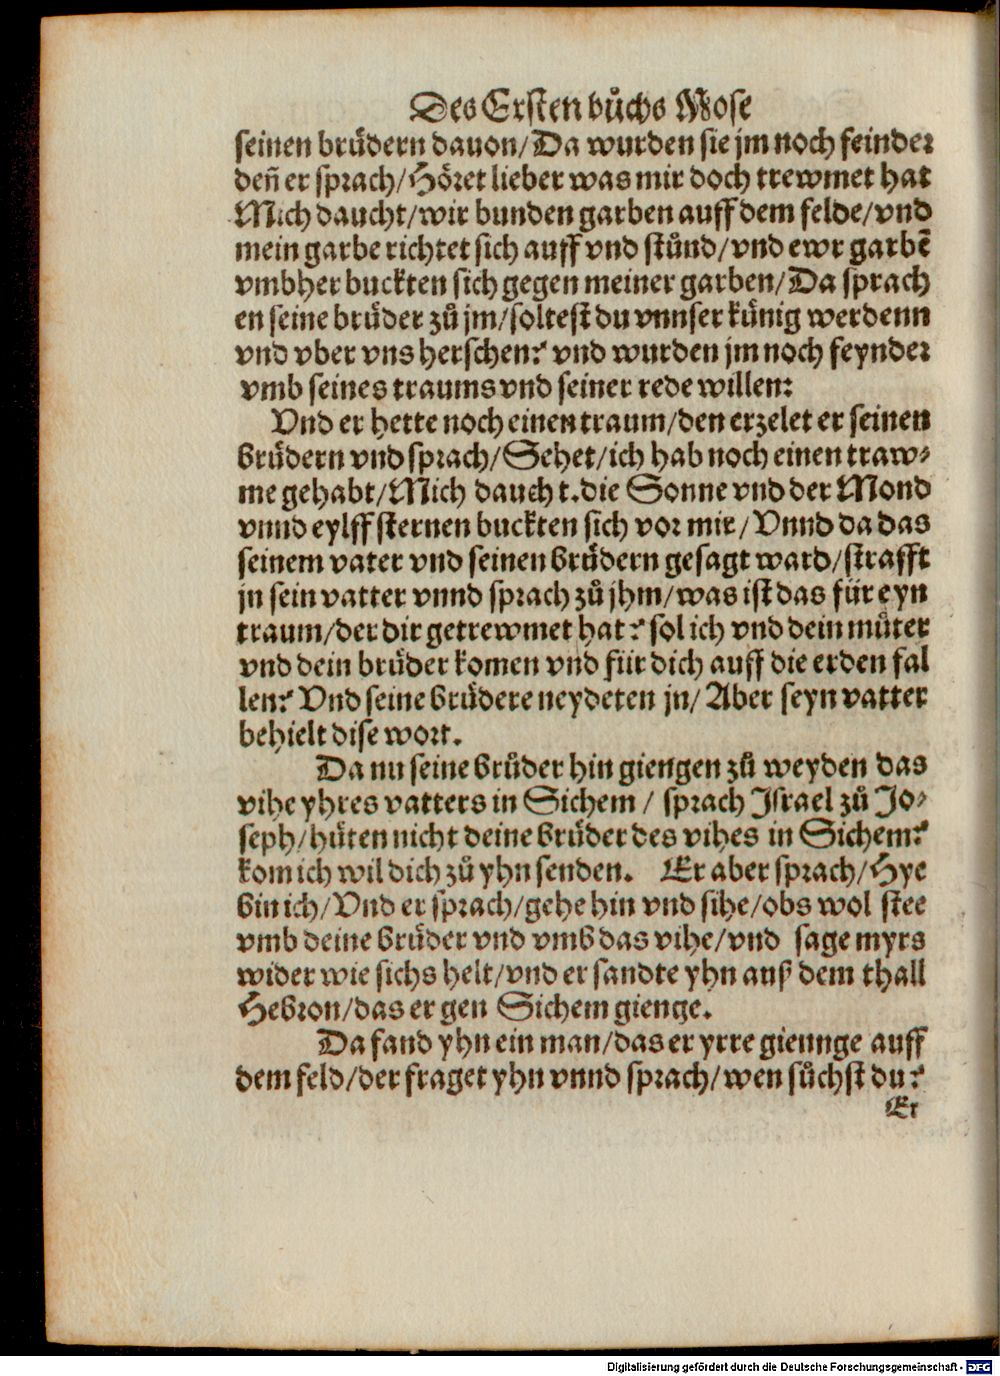 Des Ersten bůchs Mose
seinen brüdern dauon/Da wurden sie jm noch feinder
deñ er sprach/Höret lieber was mir doch trewmet hat
Mich daucht/wir bunden garben auff dem felde/vnd
mein garbe richtet sich auff vnd stůnd/vnd ewr garbē
vmbher buckten sich gegen meiner garben/Da sprach
en seine brüder zů jm/soltest du vnnser künig werdenn
vnd vber vns herschen? vnd wurden jm noch feynder
vmb seines traums vnd seiner rede willen:
Vnd er hette noch einen traum/den erzelet er seinen
brüdern vnd sprach/Sehet/ich hab noch einen traw⸗
me gehabt/Mich daucht.die Sonne vnd der Mond
vnnd eylff sternen buckten sich vor mir/Vnnd da das
seinem vater vnd seinen brüdern gesagt ward/strafft
jn sein vatter vnnd sprach zů jhm/was ist das für eyn
traum/der dir getrewmet hat? sol ich vnd dein můter
vnd dein brüder komen vnd für dich auff die erden fal
len? Vnd seine brüdere neydeten jn/Aber seyn vatter
behielt dise wort.
Da nu seine brüder hin giengen zů weyden das
vihe yhres vatters in Sichem/ sprach Israel zů Jo⸗
seph/hüten nicht deine brüder des vihes in Sichem?
kom ich wil dich zů yhn senden. Er aber sprach/Hye
bin ich/Vnd er sprach/gehe hin vnd sihe/obs wol stee
vmb deine brüder vnd vmb das vihe/vnd sage myrs
wider wie sichs helt/vnd er sandte yhn auß dem thall
Hebron/das er gen Sichem gienge.
Da fand yhn ein man/das er yrre giennge auff
dem feld/der fraget yhn vnnd sprach/wen sůchst du?
Er
Digitalisierung gefördert durch die Deutsche Forschungsgemeinschaft - DFG